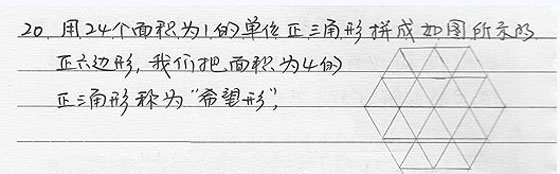 20. 用24个面积为1的单位正三角形拼成如图所示的
正六边形,我们把面积为4的
正三角形称为"希望形",